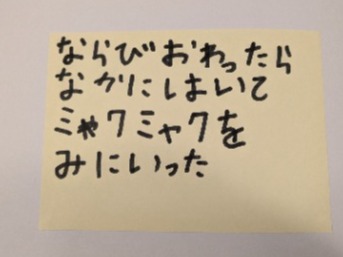 ならびおわったら
なかにはいて
ミャクミャクを
みにいった